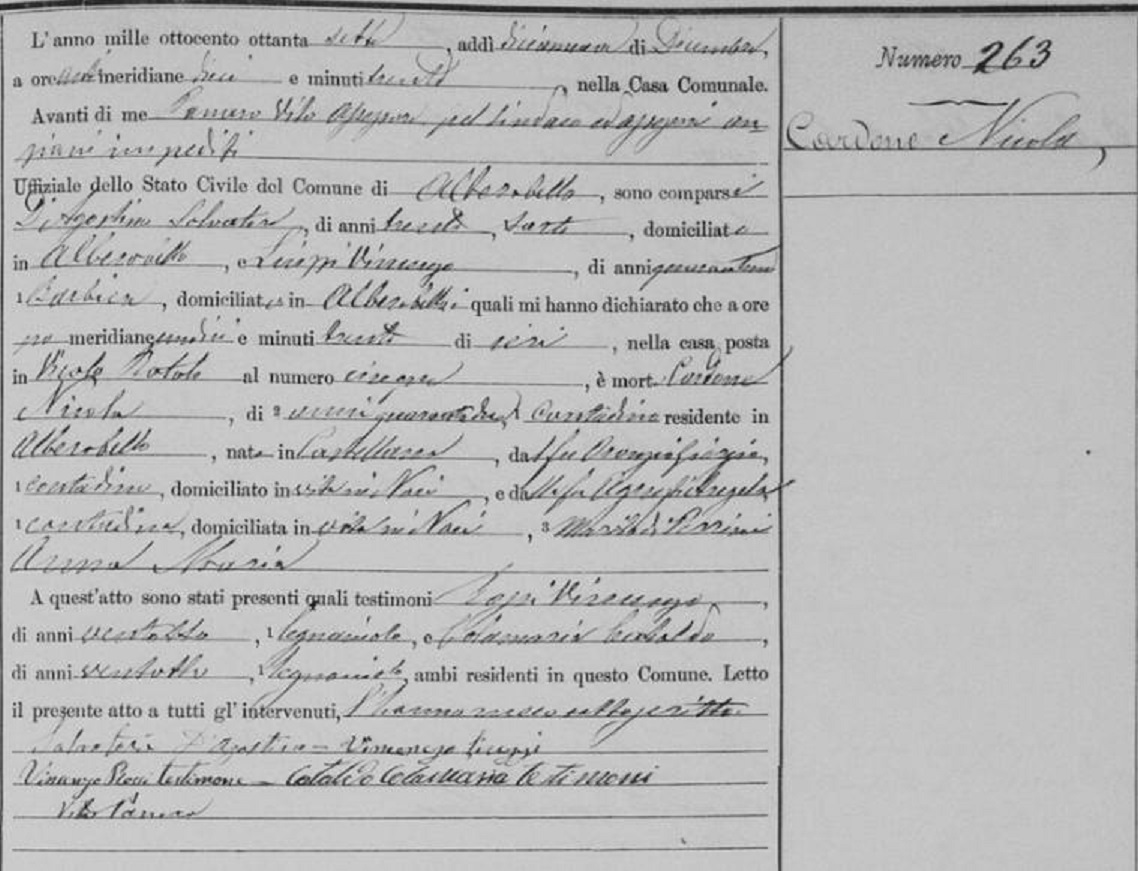 L'anno mille ottocento ottanta sette, addì diciannove di Dicembre,
a ore anti meridiane dieci e minuti trenta, nella Casa Comunale.
Avanti di me Panaro Vito Assessore pel Sindaco ed assessori an
ziani impediti
Uffiziale dello Stato Civile del Comune di Alberobello, sono comparsi
D'Agostino Salvatore, di anni trenta, Sarto, domiciliato
in Alberobello, e Liuzzi Vincenzo, di anni
1 Barbiere, domiciliato in Alberobello i quali mi hanno dichiarato che a ore
po meridiane undici e minuti trenta di ieri, nella casa posta
in Vicolo Rotolo al numero, è mort Cardone
Nicola, di 2 anni quarantadue, Contadino residente in
Alberobello, nato in Castellana, dal fu Oronzo,
1 contadino, domiciliato in vita in Noci, e dalla fu Angela
1 contadina, domiciliata in vita in Noci, 3 Marito di
Anna Maria
A quest'atto sono stati presenti quali testimoni Vincenzo,
di anni ventotto, 1 legnaiuolo, e Colamaria Cataldo,
di anni ventotto, 1 legnaiuolo, ambi residenti in questo Comune. Letto
il presente atto a tutti gl'intervenuti, l'hanno meco sottoscritto
Salvatore D'Agostino - Vincenzo Liuzzi
Vincenzo testimone - Cataldo Colamaria testimoni
Vito Panaro
Numero 263
Cardone Nicola,